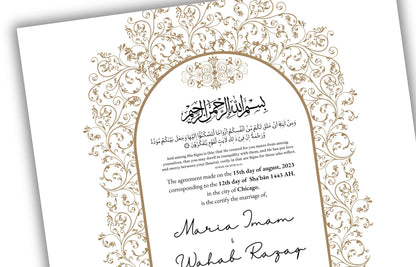 بِسْمِ اللهِ الرَّحْمٰنِ الرَّحِيْمِ
وَمِنْ آيَاتِهِ أَنْ خَلَقَ لَكُم مِّنْ أَنفُسِكُمْ أَزْوَاجًا لِّتَسْكُنُوا إِلَيْهَا وَجَعَلَ بَيْنَكُم مَّوَدَّةً
وَرَحْمَةً إِنَّ فِي ذَٰلِكَ لَآيَاتٍ لِّقَوْمٍ يَتَفَكَّرُونَ
And among His Signs is this, that He created for you mates from among
yourselves, that you may dwell in tranquility with them, and He has put love
and mercy between your (hearts): verily in that are Signs for those who reflect.
The agreement made on the 15th day of august, 2023
corresponding to the 12th day of Sha'bān 1443 AH.
in the city of Chicago.
is the certify the marriage of,
Maria Imam
&
Wahab Razaq